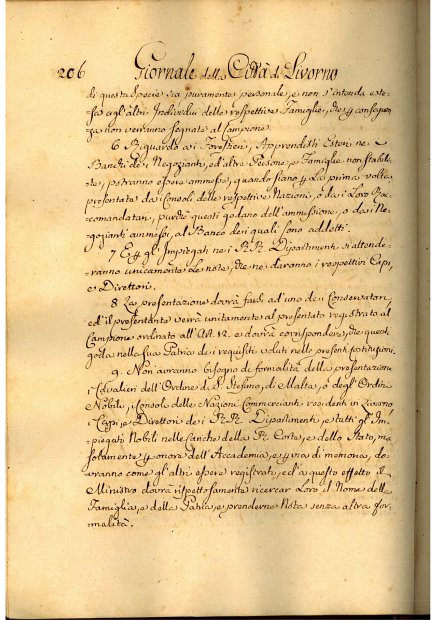 206 Giornale della Città di Livorno
di questa specie sia puramente personale, e non s'intenda este-
sa agl'altri Individui delle respettive Famiglie, che p conseguen-
za non verranno segnate al Campione.
6 Riguardo ai Forestieri, Apprendisti Esteri nei
Banchi dei Negozianti, ed altre Persone, e Famiglie non stabili-
te, potranno essere ammesse, quando siano p La prima volta
presentate dai Consoli delle respettive Nazioni, o dai Loro Rac-
comandatari, purchè questi godano dell'ammissione, o dai Ne-
gozianti ammessi, al Banco dei quali sono addetti.
7 E p gl'Impiegati nei R. R. Dipartimenti si attende-
ranno unicamente Le note, che ne daranno i respettivi Capi,
e Direttori.
8 La presentazione dovrà farsi ad uno dei Conservatori,
ed il presentante verrà unitamente al presentato registrato al
Campione ordinato all'Art. 12. e dovrà corrispondere, che questi
goda nella sua Patria dei requisiti voluti nelle presenti Costituzioni.
9. Non avranno bisogno di formalità della presentazione
i Cavalieri dell'Ordine di S. Stefano, di Malta, o degl'Ordini
Nobili, i Consoli delle Nazioni Commercianti residenti in Livorno
i Capi, e Direttori dei R. R. Dipartimenti, e tutti gl'Im-
piegati Nobili nelle Cariche della R. Corte, e dello Stato, ma
solamente p onore dell'Accademia, e p via di memoria, do-
vranno come gl'altri essere registrati, ed a questo effetto il
Ministro dovrà rispettosamente ricercar Loro il Nome della
Famiglia, e della Patria, e prenderne Nota senza altra for-
malità.